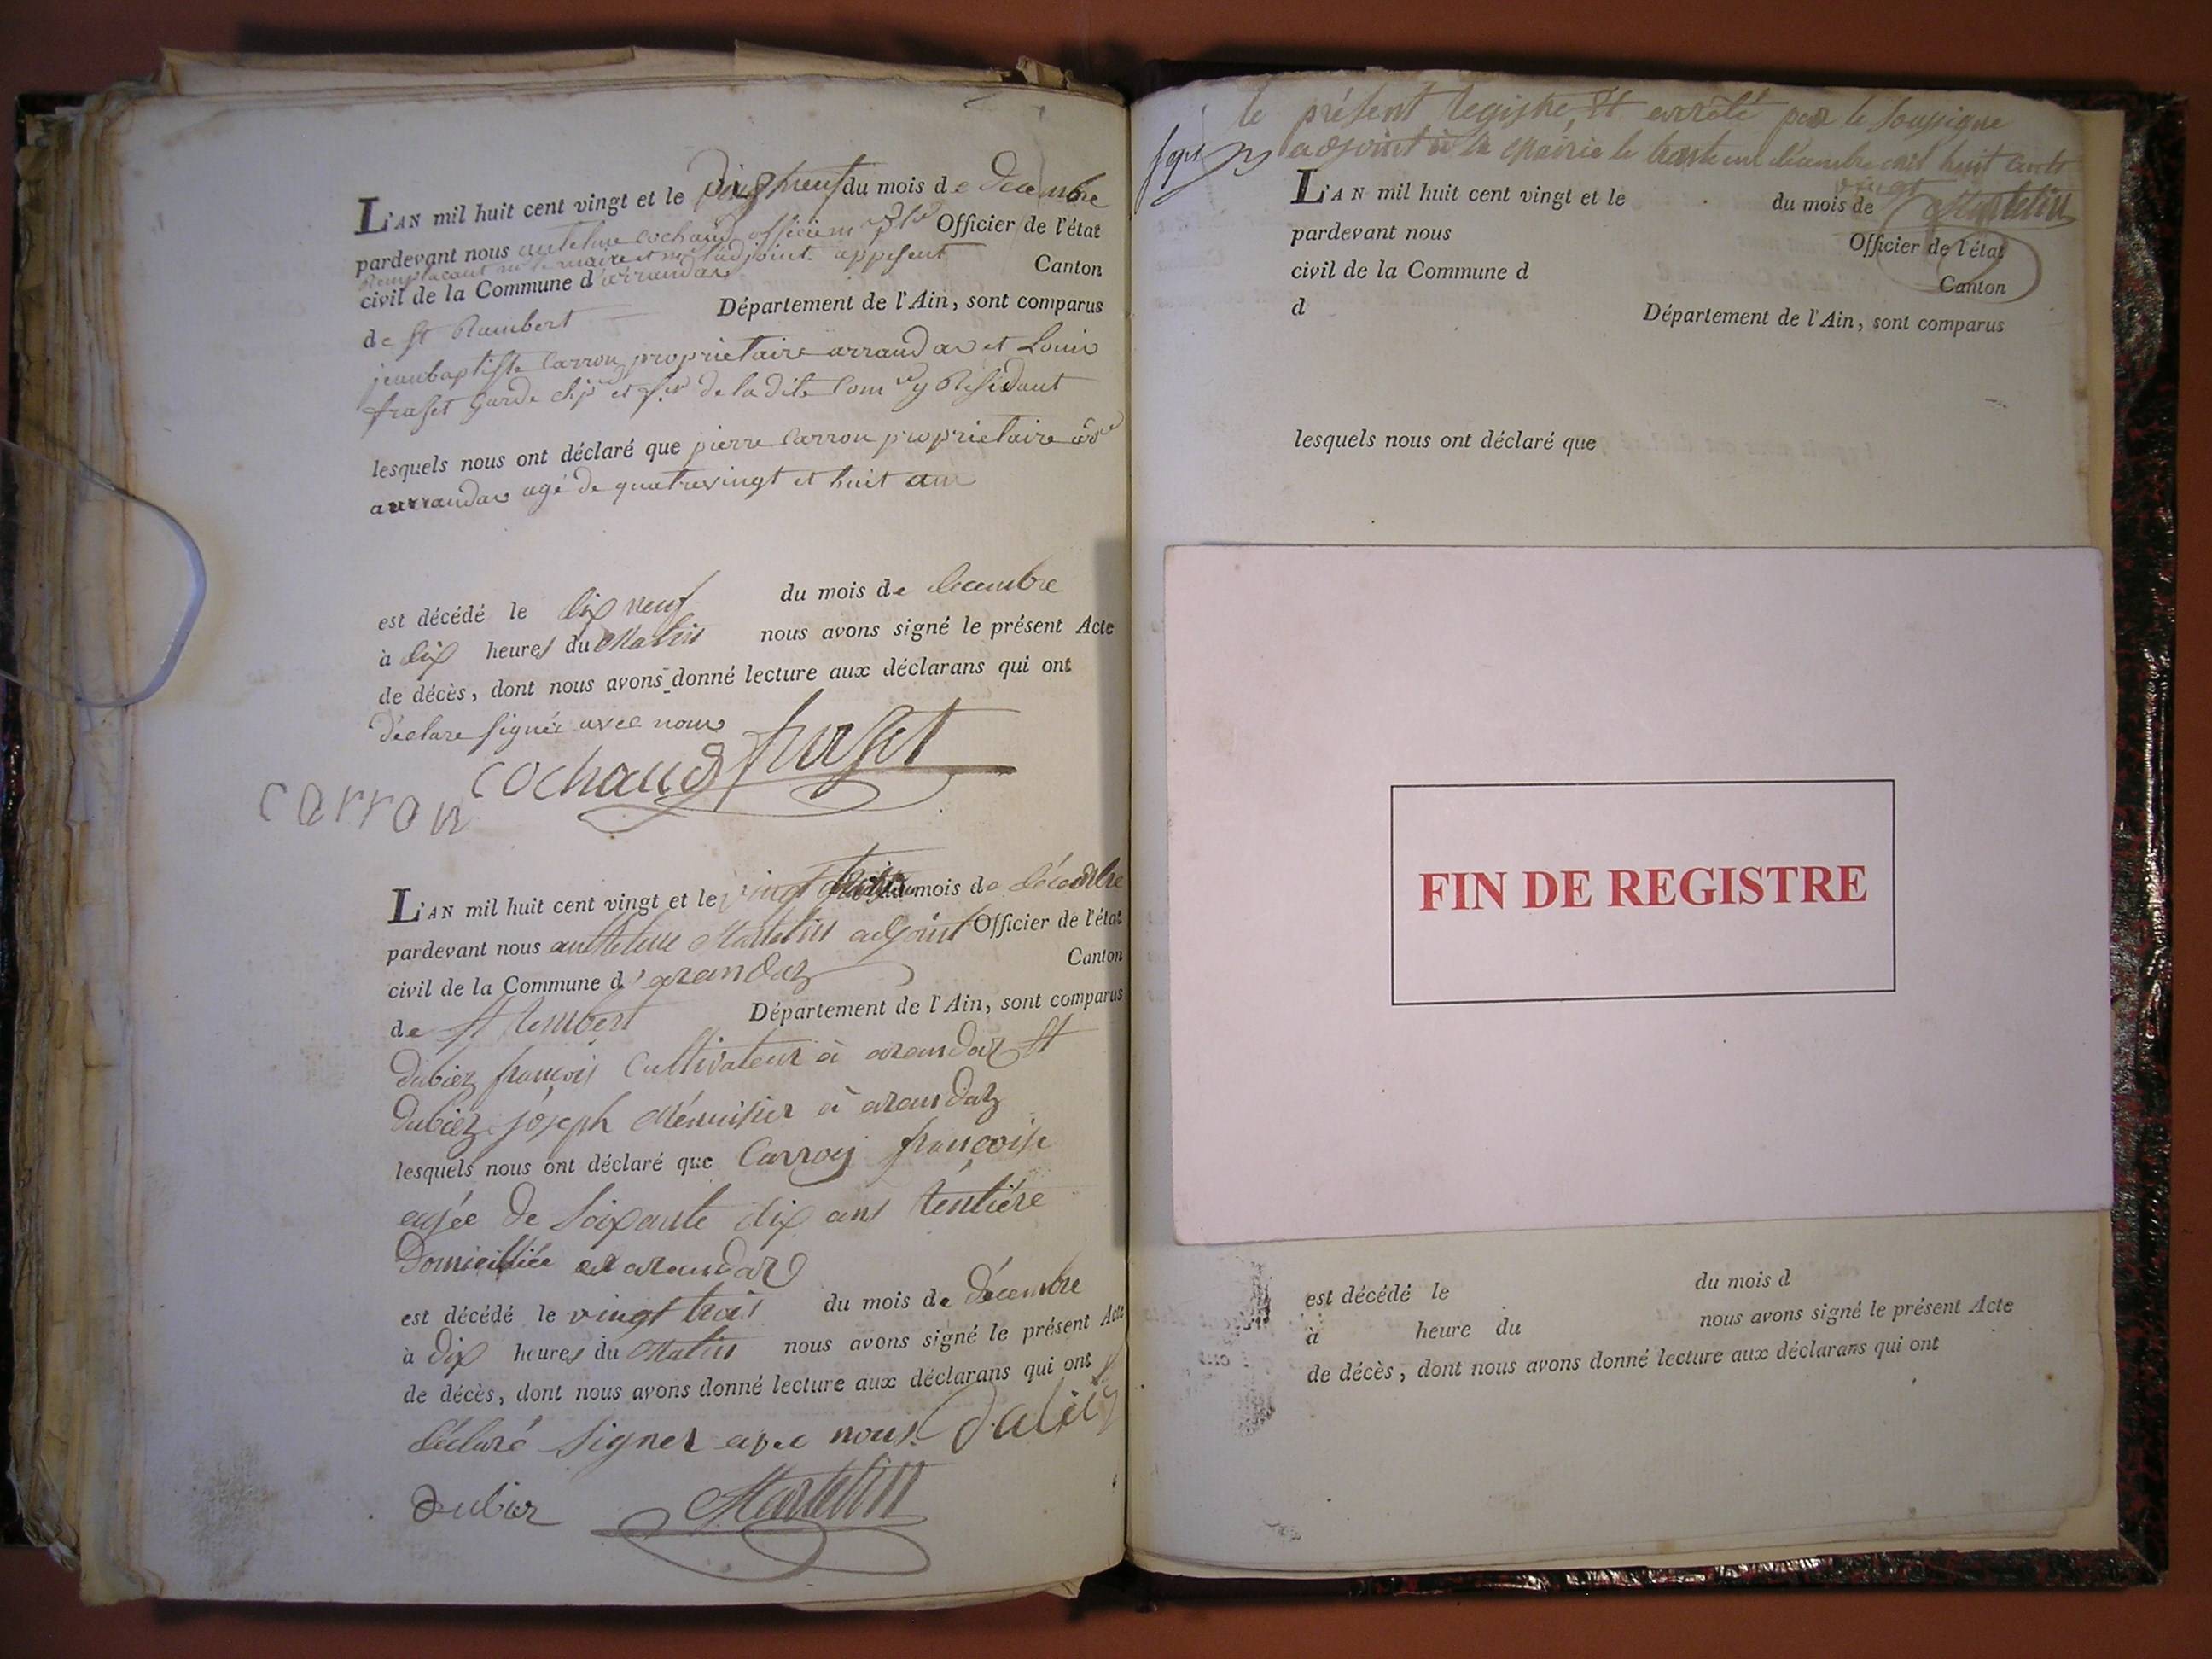 L'AN mil huit cent vingt et le dix neuf du mois de decembre
pardevant nous anthelme cochaud officier Officier de l'état
remplacant mr le maire et mr l'adjoint appesent
civil de la Commune d arrandas Canton
de St Rambert Département de l'Ain, sont comparus
jeanbaptiste Carron proprietaire arrandas et Louis
frafet garde de la dite Com y Residant
lesquels nous ont déclaré que pierre Carron proprietaire
arrandas agé de quatrevingt et huit ans
est décédé le dix neuf du mois de decembre
à dix heures du Matin nous avons signé le présent Acte
de décès, dont nous avons donné lecture aux déclarans qui ont
déclare signée avec nous
cochaud frafet
carron
L'AN mil huit cent vingt et le vingt trois du mois de décembre
pardevant nous anthelme Martelin adjoint Officier de l'état
civil de la Commune d'arandaz Canton
de St rembert Département de l'Ain, sont comparus
dubiez françois Cultivateur à arandaz Et
dubiez joseph Ménuisier à arandaz
lesquels nous ont déclaré que Carron françoise
agée de Soixante dix ans rentière
Domicilliée a arandaz
est décédé le vingt trois du mois de décembre
à dix heures du Matin nous avons signé le présent Acte
de décès, dont nous avons donné lecture aux déclarans qui ont
déclaré signer avec nous. dubiez
dubiez Martelin
le présent registre, Et arrêté par le Soussigne
adjoint à la Mairie le trente un décembre mil huit cents
vingt Martelin
L'AN mil huit cent vingt et le du mois de
pardevant nous Officier de l'état
civil de la Commune d Canton
d Département de l'Ain, sont comparus
lesquels nous ont déclaré que
FIN DE REGISTRE
est décédé le du mois d
à heure du nous avons signé le présent Acte
de décès, dont nous avons donné lecture aux déclarans qui ont